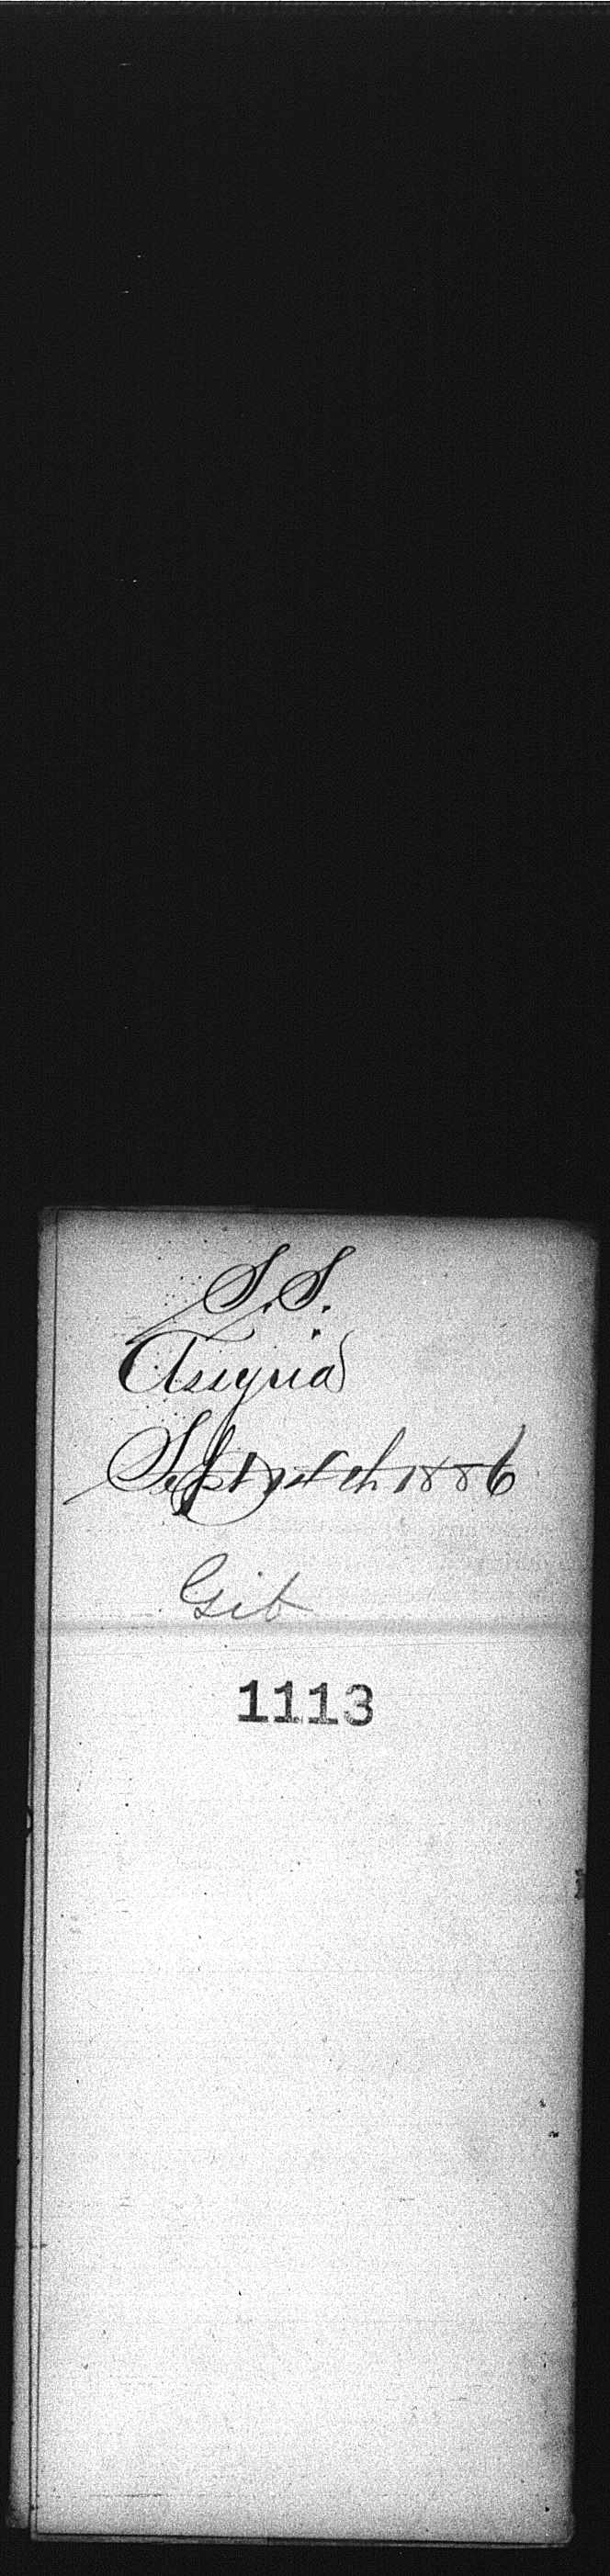 S.S.
Assyria
Sept 1886
Gib
1113